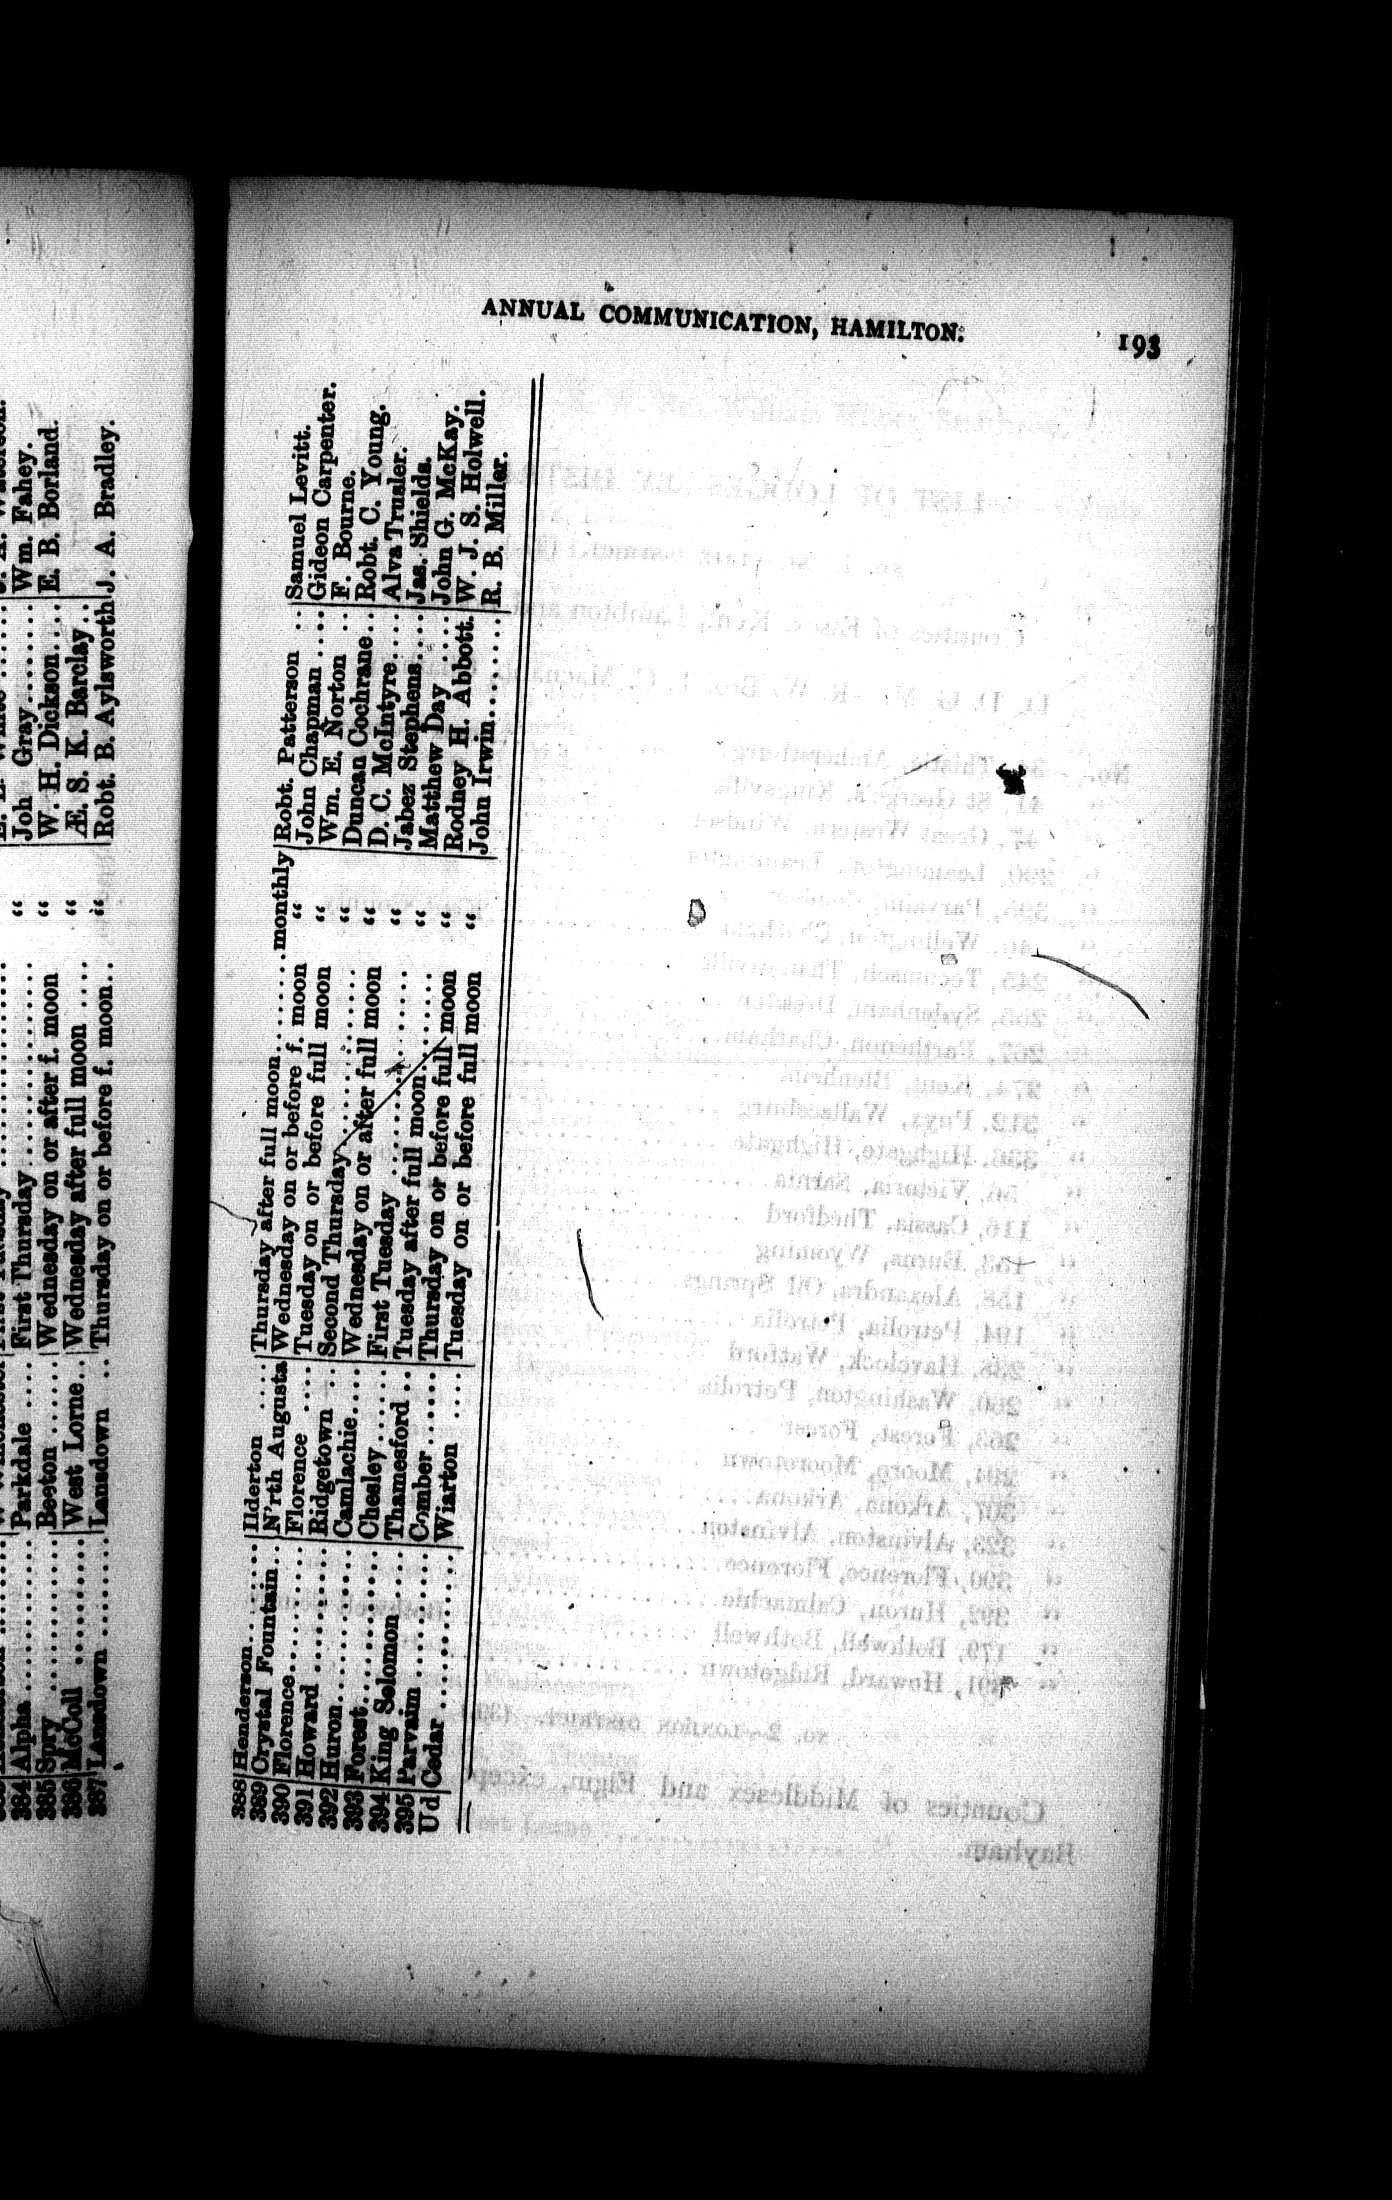 ANNUAL COMMUNICATION, HAMILTON. 193
384 Alpha.......... Parkdale .... First Thursday.......... “ Joh Gray........ Wm. Fahey.
385 Spry .......... Beeton ...... Wednesday on or after f. moon “ W. H. Dickson.... E. B. Borland.
386 McColl .......... West Lorne.. Wednesday after full moon .... “ Æ. S. K. Barclay..
387 Lansdown ........ Lansdown .. Thursday on or before f. moon.. “ Robt. B. Aylsworth J. A. Bradley.
388 Henderson........ Ilderton .... Thursday after full moon........ monthly Robt. Patterson .. Samuel Levitt.
389 Crystal Fountain.. N'rth Augusta Wednesday on or before f. moon “ John Chapman .... Gideon Carpenter.
390 Florence.......... Florence .... Tuesday on or before full moon “ Wm. E. Norton ... F. Bourne.
391 Howard .......... Ridgetown .. Second Thursday.......... “ Duncan Cochrane.. Robt. C. Young.
392 Huron.......... Camlachie.... Wednesday on or after full moon “ D. C. McIntyre.... Alva Trusler.
393 Forest.......... Chesley...... First Tuesday .......... “ Jabez Stephens.... Jas. Shields.
394 King Solomon .... Thamesford .. Tuesday after full moon........ “ Matthew Day .... John G. McKay.
395 Parvaim .......... Comber ...... Thursday on or before full moon “ Rodney H. Abbott. W. J. S. Holwell.
U d Cedar .......... Wiarton .... Tuesday on or before full moon “ John Irwin........ R. B. Miller.